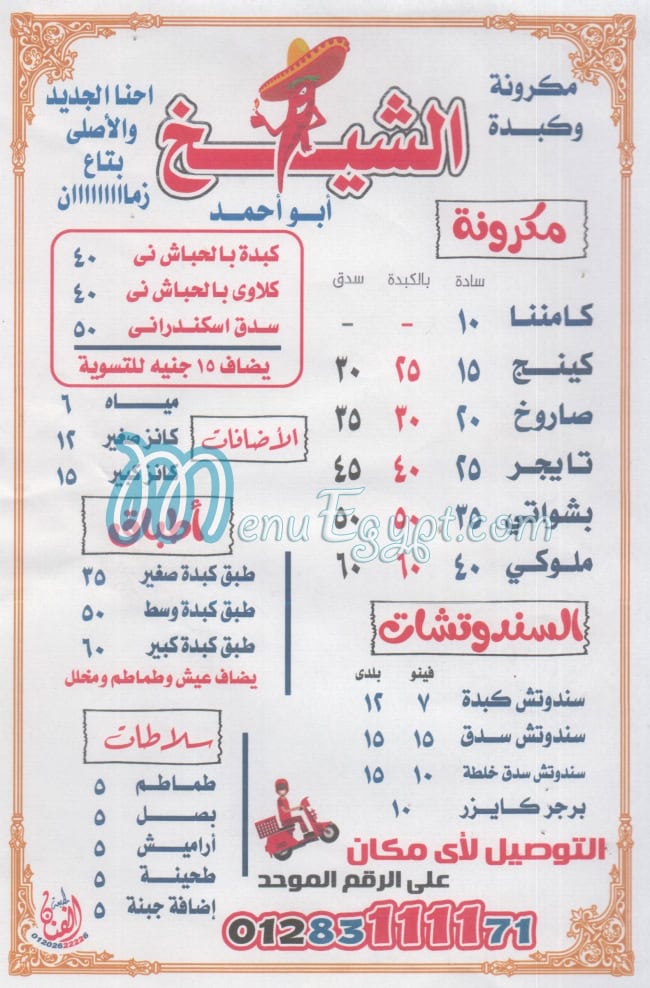 مكرونة
وكبدة
الشيخ
أبو أحمد
احنا الجديد
والأصلى
بتاع
زمااااااااان
مكرونة
سادة بالكبدة سدق
كامننا ١٠ - -
كينج ١٥ ٢٥ ٣٠
صاروخ ٢٠ ٣٠ ٣٥
تايجر ٢٥ ٤٠ ٤٥
بشواتي ٣٥ ٥٠ ٥٠
ملوكي ٤٠ ٦٠ ٦٠
كبدة بالحباش نى ٤٠
كلاوى بالحباش نى ٤٠
سدق اسكندرانى ٥٠
يضاف ١٥ جنيه للتسوية
الأضافات
مياه ٦
كانز صغير ١٢
كانز كبير ١٥
MenuEgypt.com
أطباق
طبق كبدة صغير ٣٥
طبق كبدة وسط ٥٠
طبق كبدة كبير ٦٠
يضاف عيش وطماطم ومخلل
السندوتشات
فينو بلدى
سندوتش كبدة ٧ ١٢
سندوتش سدق ١٥ ١٥
سندوتش سدق خلطة ١٠ ١٥
برجر كايزر ١٠
سلاطات
طماطم ٥
بصل ٥
أراميش ٥
طحينة ٥
إضافة جبنة ٥
التوصيل لأى مكان
على الرقم الموحد
01283111171
الفنان
01202622226